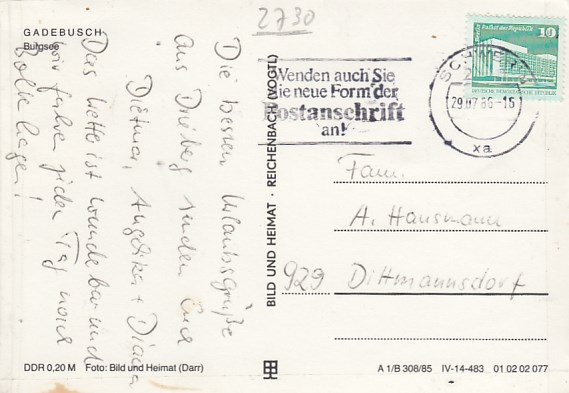 2730
GADEBUSCH
Burgsee
Die besten Urlaubsgrüße
aus Drieberg senden Euch
Dietmar, Angelika + Diana
Das Wetter ist wunderbar und
wir fahren jeden Tag nach
BILD UND HEIMAT · REICHENBACH (VOGTL)
Wenden auch Sie
die neue Form der
Postanschrift
an!
SCHWERIN
29.07.86-16
xa
Palast der Republik
10
DEUTSCHE DEMOKRATISCHE REPUBLIK
Fam.
A. Hausmann
929 Dittmannsdorf
DDR 0,20 M Foto: Bild und Heimat (Darr)
A 1/B 308/85 IV-14-483 01 02 02 077